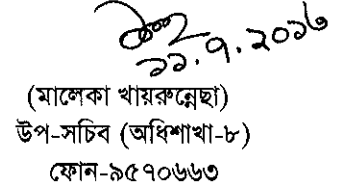 ১১.৭.২০১৬
(মালেকা খায়রুন্নেছা)
উপ-সচিব (অধিশাখা-৮)
ফোন-৯৫৭০৬৬৩